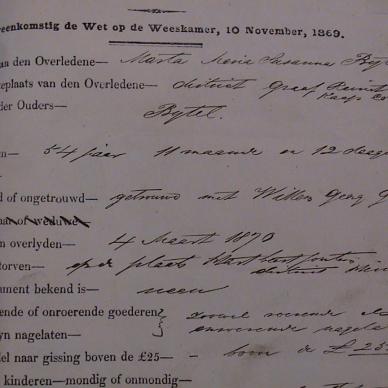 reenkomstig de Wet op de Weeskamer, 10 November, 1869.
an den Overledene— Marta Maria Susanna
teplaats van den Overledene— district Graaf Reinet
Kaap Co
der Ouders—
Bytel.
n— 54 jaar 11 maande en 12 dage
d of ongetrouwd— getrouwd met Willem Georg
naar of weduwe—
n overlyden— 4 Maart 1870
torven— op de plaats
district
ument bekend is— neen
ende of onroerende goederen
yn nagelaten— onroerende nagela
del naar gissing boven de £25— boven de £25
kinderen—mondig of onmondig—